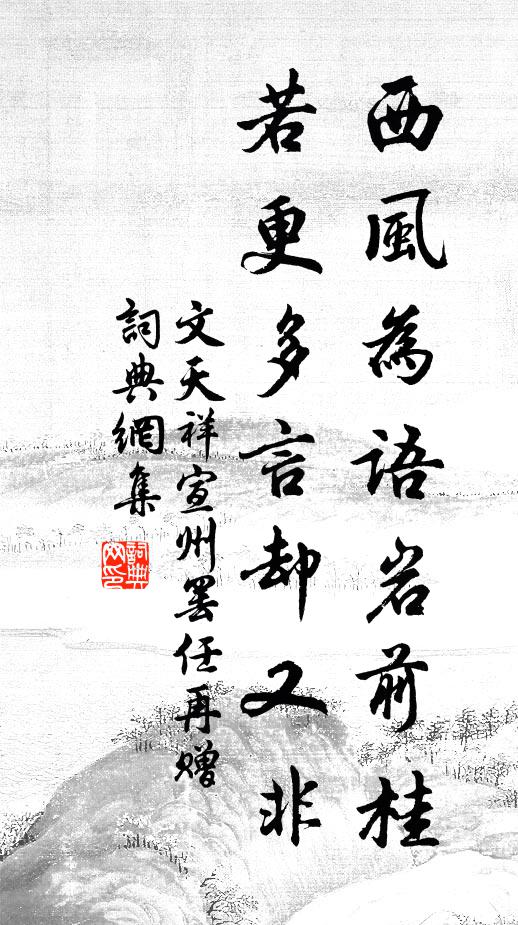 西風為語岩前桂
若更多言却又非
文天祥宣州罷任再贈
詞典網集
詞典
网印